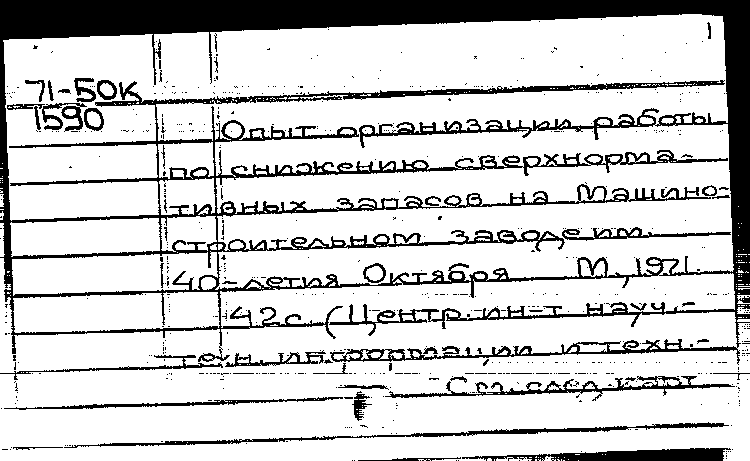 71-50К
1590
Опыт организации работы
по снижению сверхнорма-
тивных запасов на Машино-
строительном заводе им.
40-летия Октября М., 1971.
42с. (Центр. ин-т науч.-
техн. информации и техн.-
См. след. карт